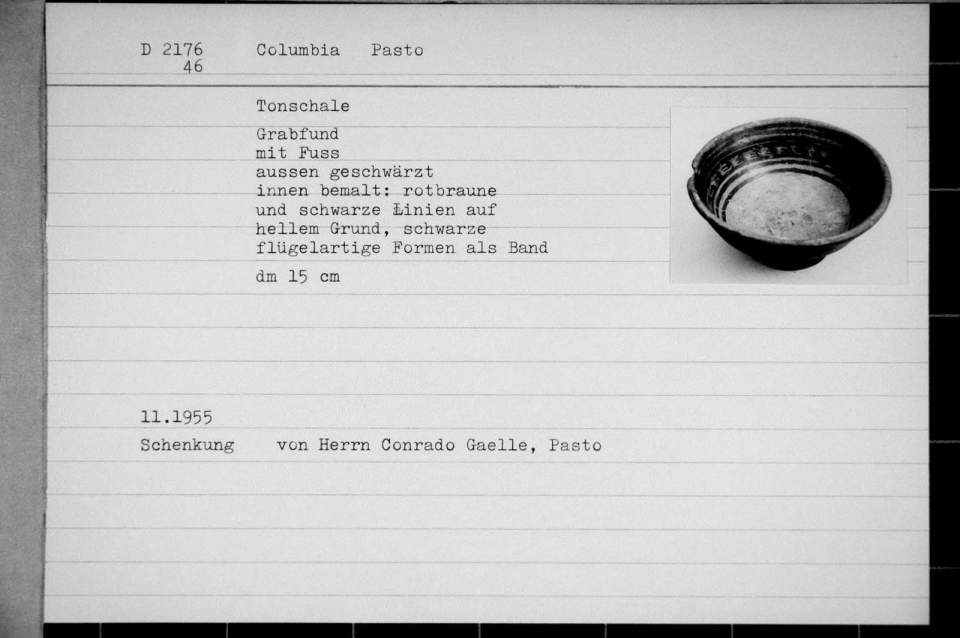 D 2176 Columbia Pasto
46
Tonschale
Grabfund
mit Fuss
aussen geschwärzt
innen bemalt: rotbraune
und schwarze Linien auf
hellem Grund, schwarze
flügelartige Formen als Band
dm 15 cm
11.1955
Schenkung von Herrn Conrado Gaelle, Pasto